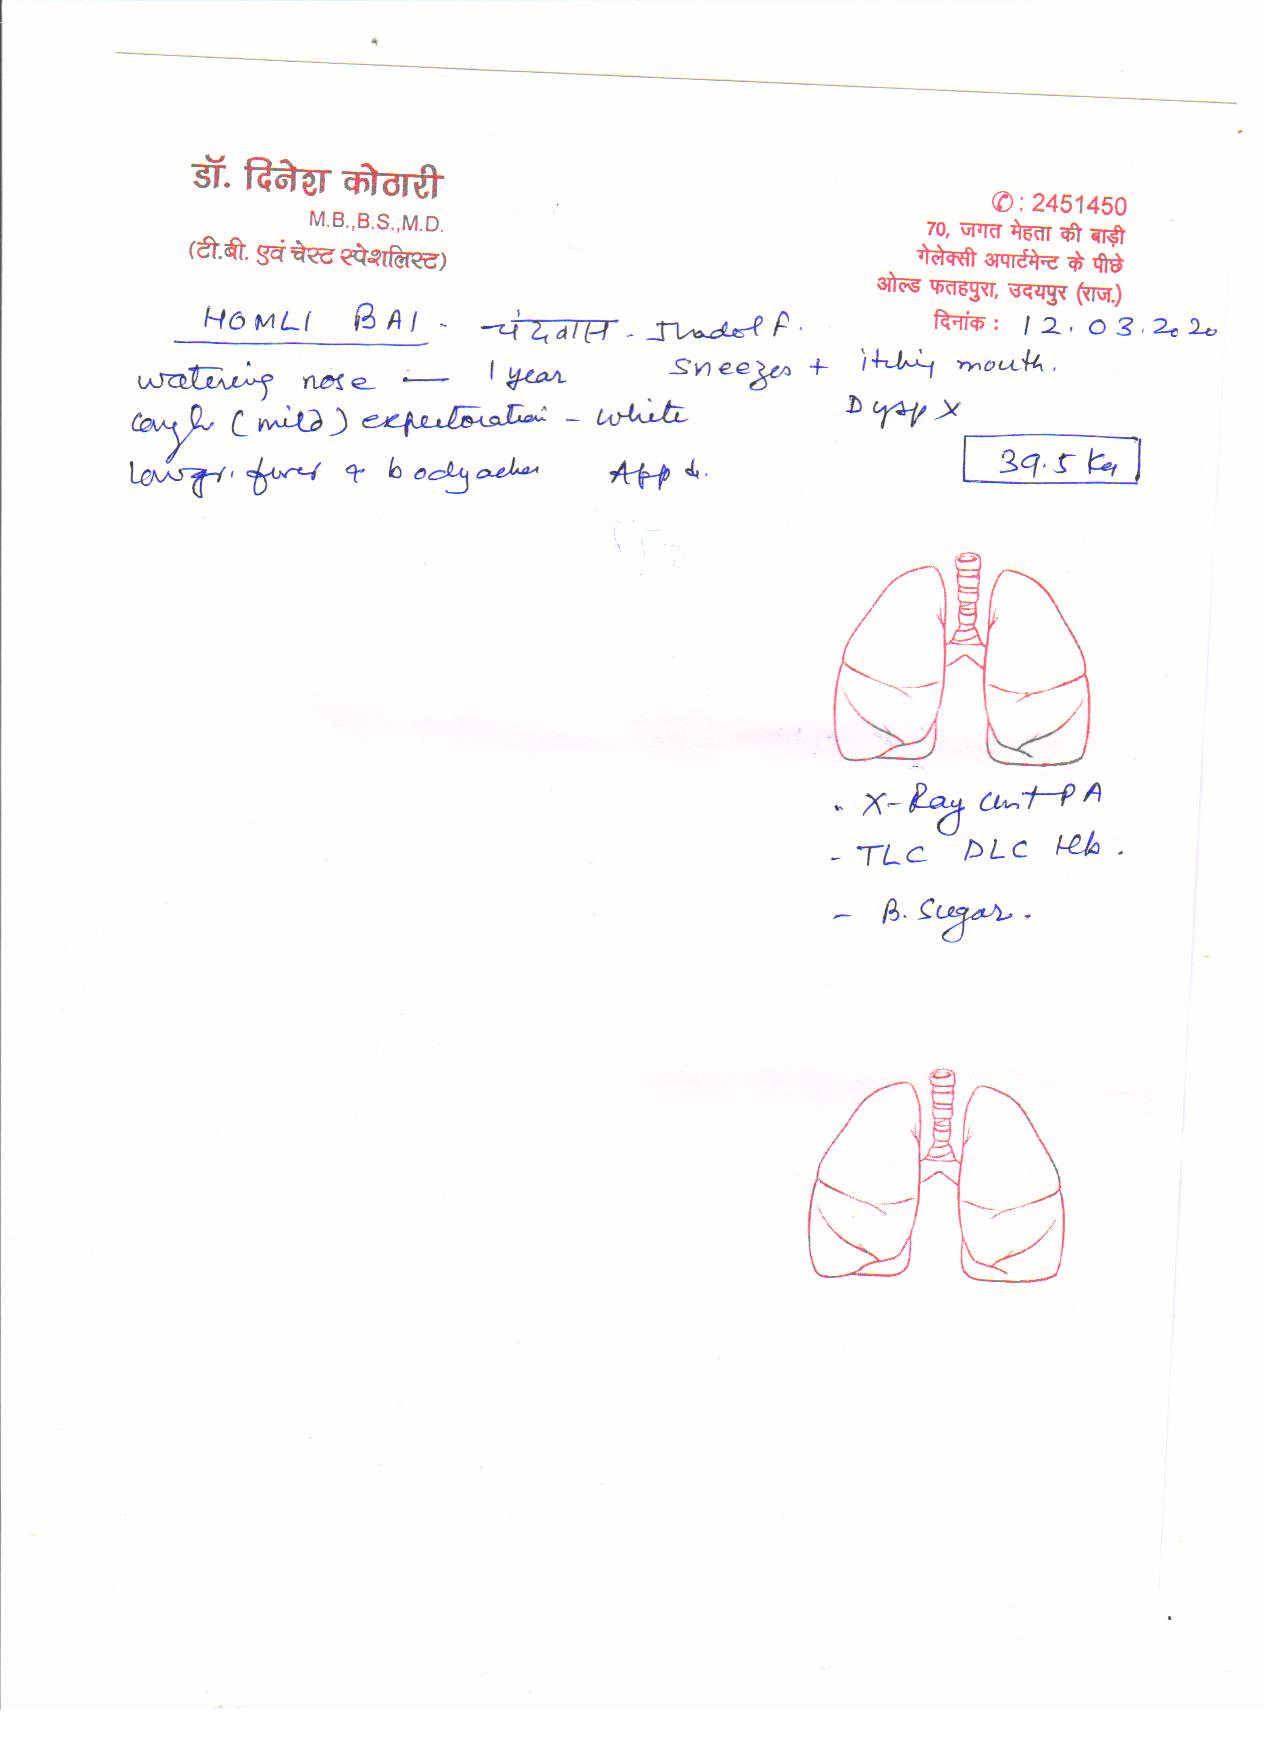 डॉ. दिनेश कोठारी
M.B.,B.S.,M.D.
(टी.बी. एवं चेस्ट स्पेशलिस्ट)
✆ : 2451450
70, जगत मेहता की बाड़ी
गेलेक्सी अपार्टमेन्ट के पीछे
ओल्ड फतहपुरा, उदयपुर (राज.)
दिनांक : 12.03.2020
HOMLI BAI - चंदवास - Jhadol F.
watering nose — 1 year Sneezes + itching mouth.
cough (mild) expectoration - white Dysp X
low gr. fever + bodyaches App ↓.
39.5 Kg
- X-Ray chest PA
- TLC DLC Hb.
- B. Sugar.